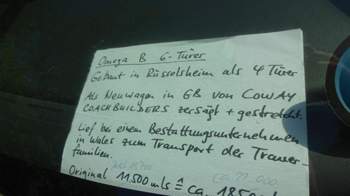 Omega B 6-Türer
Gebaut in Rüsselsheim als 4 Türer
Als Neuwagen in GB von COWAY
COACHBUILDERS zersägt + gestreckt.
Lief bei einem Bestattungsunternehmen
in Wales zum Transport der Trauer-
familien.
Original 11500 mls ≙ ca. 1850